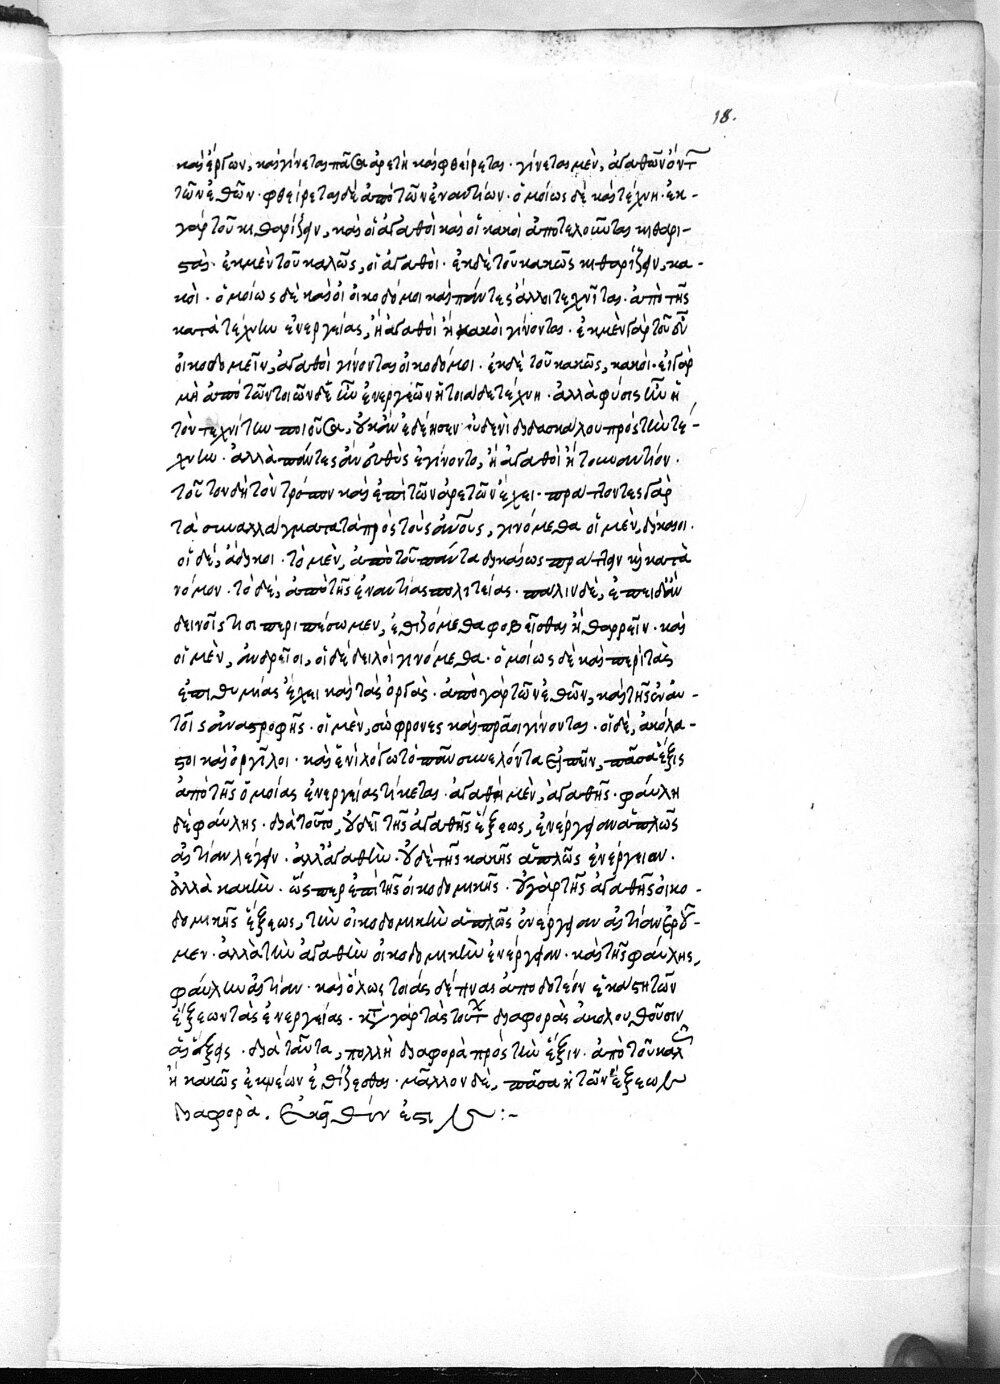 18.
καὶ ἔργων, καὶ γίνεται πᾶσα ἀρετὴ καὶ φθείρεται· γίνεται μὲν, ἀγαθῶν ὄντ
τῶν ἐθῶν· φθείρεται δὲ ἀπὸ τῶν ἐναντίων· ὁμοίως δὲ καὶ τέχνη· ἐκ-
γὰρ τοῦ κιθαρίζειν, καὶ οἱ ἀγαθοὶ καὶ οἱ κακοὶ ἀποτελοῦνται κιθαρι-
σταὶ· ἐκ μὲν τοῦ καλῶς, οἱ ἀγαθοὶ· ἐκ δὲ τοῦ κακῶς κιθαρίζειν, κα-
κοὶ· ὁμοίως δὲ καὶ οἱ οἰκοδόμοι καὶ πάντες ἄλλοι τεχνῖται· ἀπὸ τῆς
κατὰ τέχνην ἐνεργείας, ἢ ἀγαθοὶ ἢ κακοὶ γίνονται· ἐκ μὲν γὰρ τοῦ εὖ
οἰκοδομεῖν, ἀγαθοὶ γίνονται οἰκοδόμοι· ἐκ δὲ τοῦ κακῶς, κακοὶ· εἰ γὰρ
μὴ ἀπὸ τῶν τοιῶνδε ἦν ἐνεργειῶν ἡ τοιάδε τέχνη· ἀλλὰ φύσις ἦν ἡ
τὸν τεχνίτην ποιοῦσα, οὐκ ἂν ἐδέησεν οὐδενὶ διδασκάλου πρὸς τὴν τέ-
χνην· ἀλλὰ πάντες ἂν εὐθὺς ἐγίνοντο, ἢ ἀγαθοὶ ἢ τοὐναντίον·
τοῦτον δὴ τὸν τρόπον καὶ ἐπὶ τῶν ἀρετῶν ἔχει· πράττοντες γὰρ
τὰ συναλλάγματα τὰ πρὸς τοὺς ἀνους, γινόμεθα οἱ μὲν, δίκαιοι·
οἱ δὲ, ἄδικοι· τὸ μὲν, ἀπὸ τοῦ πάντα δικαίως πράττειν κὴ κατὰ
νόμον· τὸ δὲ, ἀπὸ τῆς ἐναντίας πολιτείας· πάλιν δὲ, ἐπειδὰν
δεινοῖς τισι περιπέσωμεν, ἐθιζόμεθα φοβεῖσθαι ἢ θαρρεῖν· καὶ
οἱ μὲν, ἀνδρεῖοι, οἱ δὲ δειλοὶ γινόμεθα· ὁμοίως δὲ καὶ περὶ τὰς
ἐπιθυμίας ἔχει καὶ τὰς ὀργὰς· ἀπὸ γὰρ τῶν ἐθῶν, καὶ τῆς ἐν αὐ-
τοῖς ἀναστροφῆς· οἱ μὲν, σώφρονες καὶ πρᾶοι γίνονται· οἱ δὲ, ἀκόλα-
στοι καὶ ὀργίλοι· καὶ ἑνὶ λόγω τὸ πᾶν συνελόντα εἰπεῖν, πᾶσα ἕξις
ἀπὸ τῆς ὁμοίας ἐνεργείας τίκτεται· ἀγαθὴ μὲν, ἀγαθῆς· φαύλη
δὲ φαύλης· διὰ τοῦτο, οὐ δεῖ τῆς ἀγαθῆς ἕξεως, ἐνέργειαν ἁπλῶς
αἰτίαν λέγειν· ἀλλ' ἀγαθὴν· οὐδὲ τῆς κακῆς ἁπλῶς ἐνέργειαν·
ἀλλὰ κακὴν· ὥσπερ ἐπὶ τῆς οἰκοδομικῆς· οὐ γὰρ τῆς ἀγαθῆς οἰκο-
δομικῆς ἕξεως, τὴν οἰκοδομικὴν ἁπλῶς ἐνέργειαν αἰτίαν ἐροῦ-
μεν· ἀλλὰ τὴν ἀγαθὴν οἰκοδομικὴν ἐνέργειαν· καὶ τῆς φαύλης,
φαύλην αἰτίαν· καὶ ὅλως τοιάς δέ τινας ἀποδοτέον ἑκάστη τῶν
ἕξεων τὰς ἐνεργείας· κτ γὰρ τὰς τουτ διαφορὰς ἀκολουθοῦσιν
αἱ ἕξεις· διὰ ταῦτα, πολλὴ διαφορὰ πρὸς τὴν ἕξιν· ἀπὸ τοῦ καλῶς
ἢ κακῶς ἐκ νέων ἐθίζεσθαι· μᾶλλον δὲ, πᾶσα ἡ τῶν ἕξεων
διαφορὰ. ἐστι :-